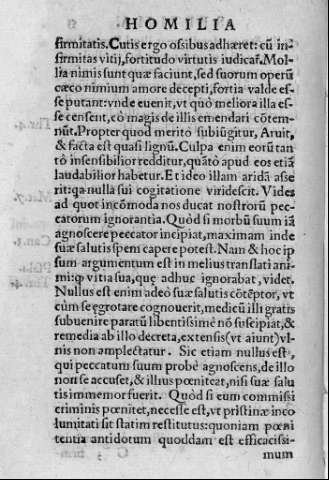 HOMILIA
firmitatis. Cutis ergo ossibus adhæret: cũ in-
firmitas vitij, fortitudo virtutis iudicat̃. Mol-
lia nimis sunt quæ faciunt, sed suorum operũ
cæco nimium amore decepti, fortia valde es-
se putant: vnde euenit, vt quò meliora illa es-
se censent, cò magis de illis emendari cõtem-
nũt. Propter quod meritò subiũgitur, Aruit,
& facta est quasi lignũ. Culpa enim eorũ tan-
tò insensibilior redditur, quãtò apud eos etiã
laudabilior habetur. Et ideo illam aridã asse
rit: qa nulla sui cogitatione viridescit. Vides
ad quot incõmoda nos ducat nostrorũ pec-
catorum ignorantia. Quòd si morbũ suum iã
agnoscere peccator incipiat, maximam inde
suæ salutis spem capere potest. Nam & hoc ip
sum argumentum est in melius translati ani-
mi: q vitia sua, quę adhuc ignorabat, videt.
Nullus est enim adeò suæ salutis cõtẽptor, vt
cùm se ęgrotare cognouerit, medicũ illi gratis
subuenire paratũ libentissimè nõ suscipiat, &
remedia ab illo decreta, extensis (vt aiunt) vl-
nis non amplectatur. Sic etiam nullus est,
qui peccatum suum probè agnoscens, de illo
non se accuset, & illius pœniteat, nisi suæ salu
tis immemor fuerit. Quòd si eum commissi
criminis pœnitet, necesse est, vt pristinæ inco
lumitati sit statim restitutus: quoniam pœni
tentia antidotum quoddam est efficacissi-
mum